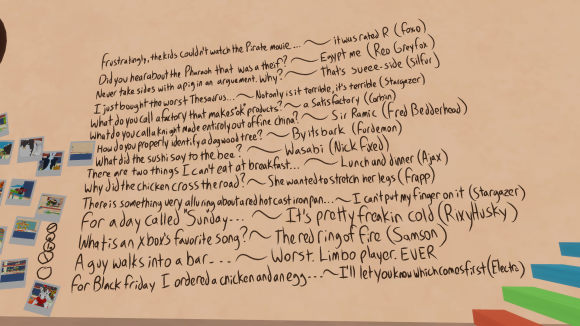 Frustratingly, the kids couldn't watch the Pirate movie... ~ it was rated R (Foxo)
Did you hear about the Pharaoh that was a theif? ~ Egypt me (Reo Greyfox)
Never take sides with a pig in an arguement. Why? ~ That's sueee-side (Silfur)
I just bought the worst Thesaurus... ~ Not only is it terrible, it's terrible (Stargazer)
What do you call a factory that makes "ok" products? ~ a Satisfactory (Corbin)
What do you call a knight made entirely out of fine china? ~ Sir Ramic (Fred Bedderhead)
How do you properly identify a dogwood tree? ~ By its bark (Furdemon)
What did the sushi say to the bee? ~ Wasabi (Nick Fixed)
There are two things I can't eat at breakfast... ~ Lunch and dinner (Ajax)
Why did the chicken cross the road? ~ She wanted to stretch her legs (Frapp)
There is something very alluring about a red hot cast iron pan... ~ I can't put my finger on it (Stargazer)
For a day called "Sunday"... ~ It's pretty freakin cold (RixyHusky)
What is an xbox's favorite song? ~ The red ring of fire (Samson)
A guy walks into a bar... ~ Worst. Limbo player. EVER
For Black friday I ordered a chicken and an egg... ~ I'll let you know which comes first (Electro)